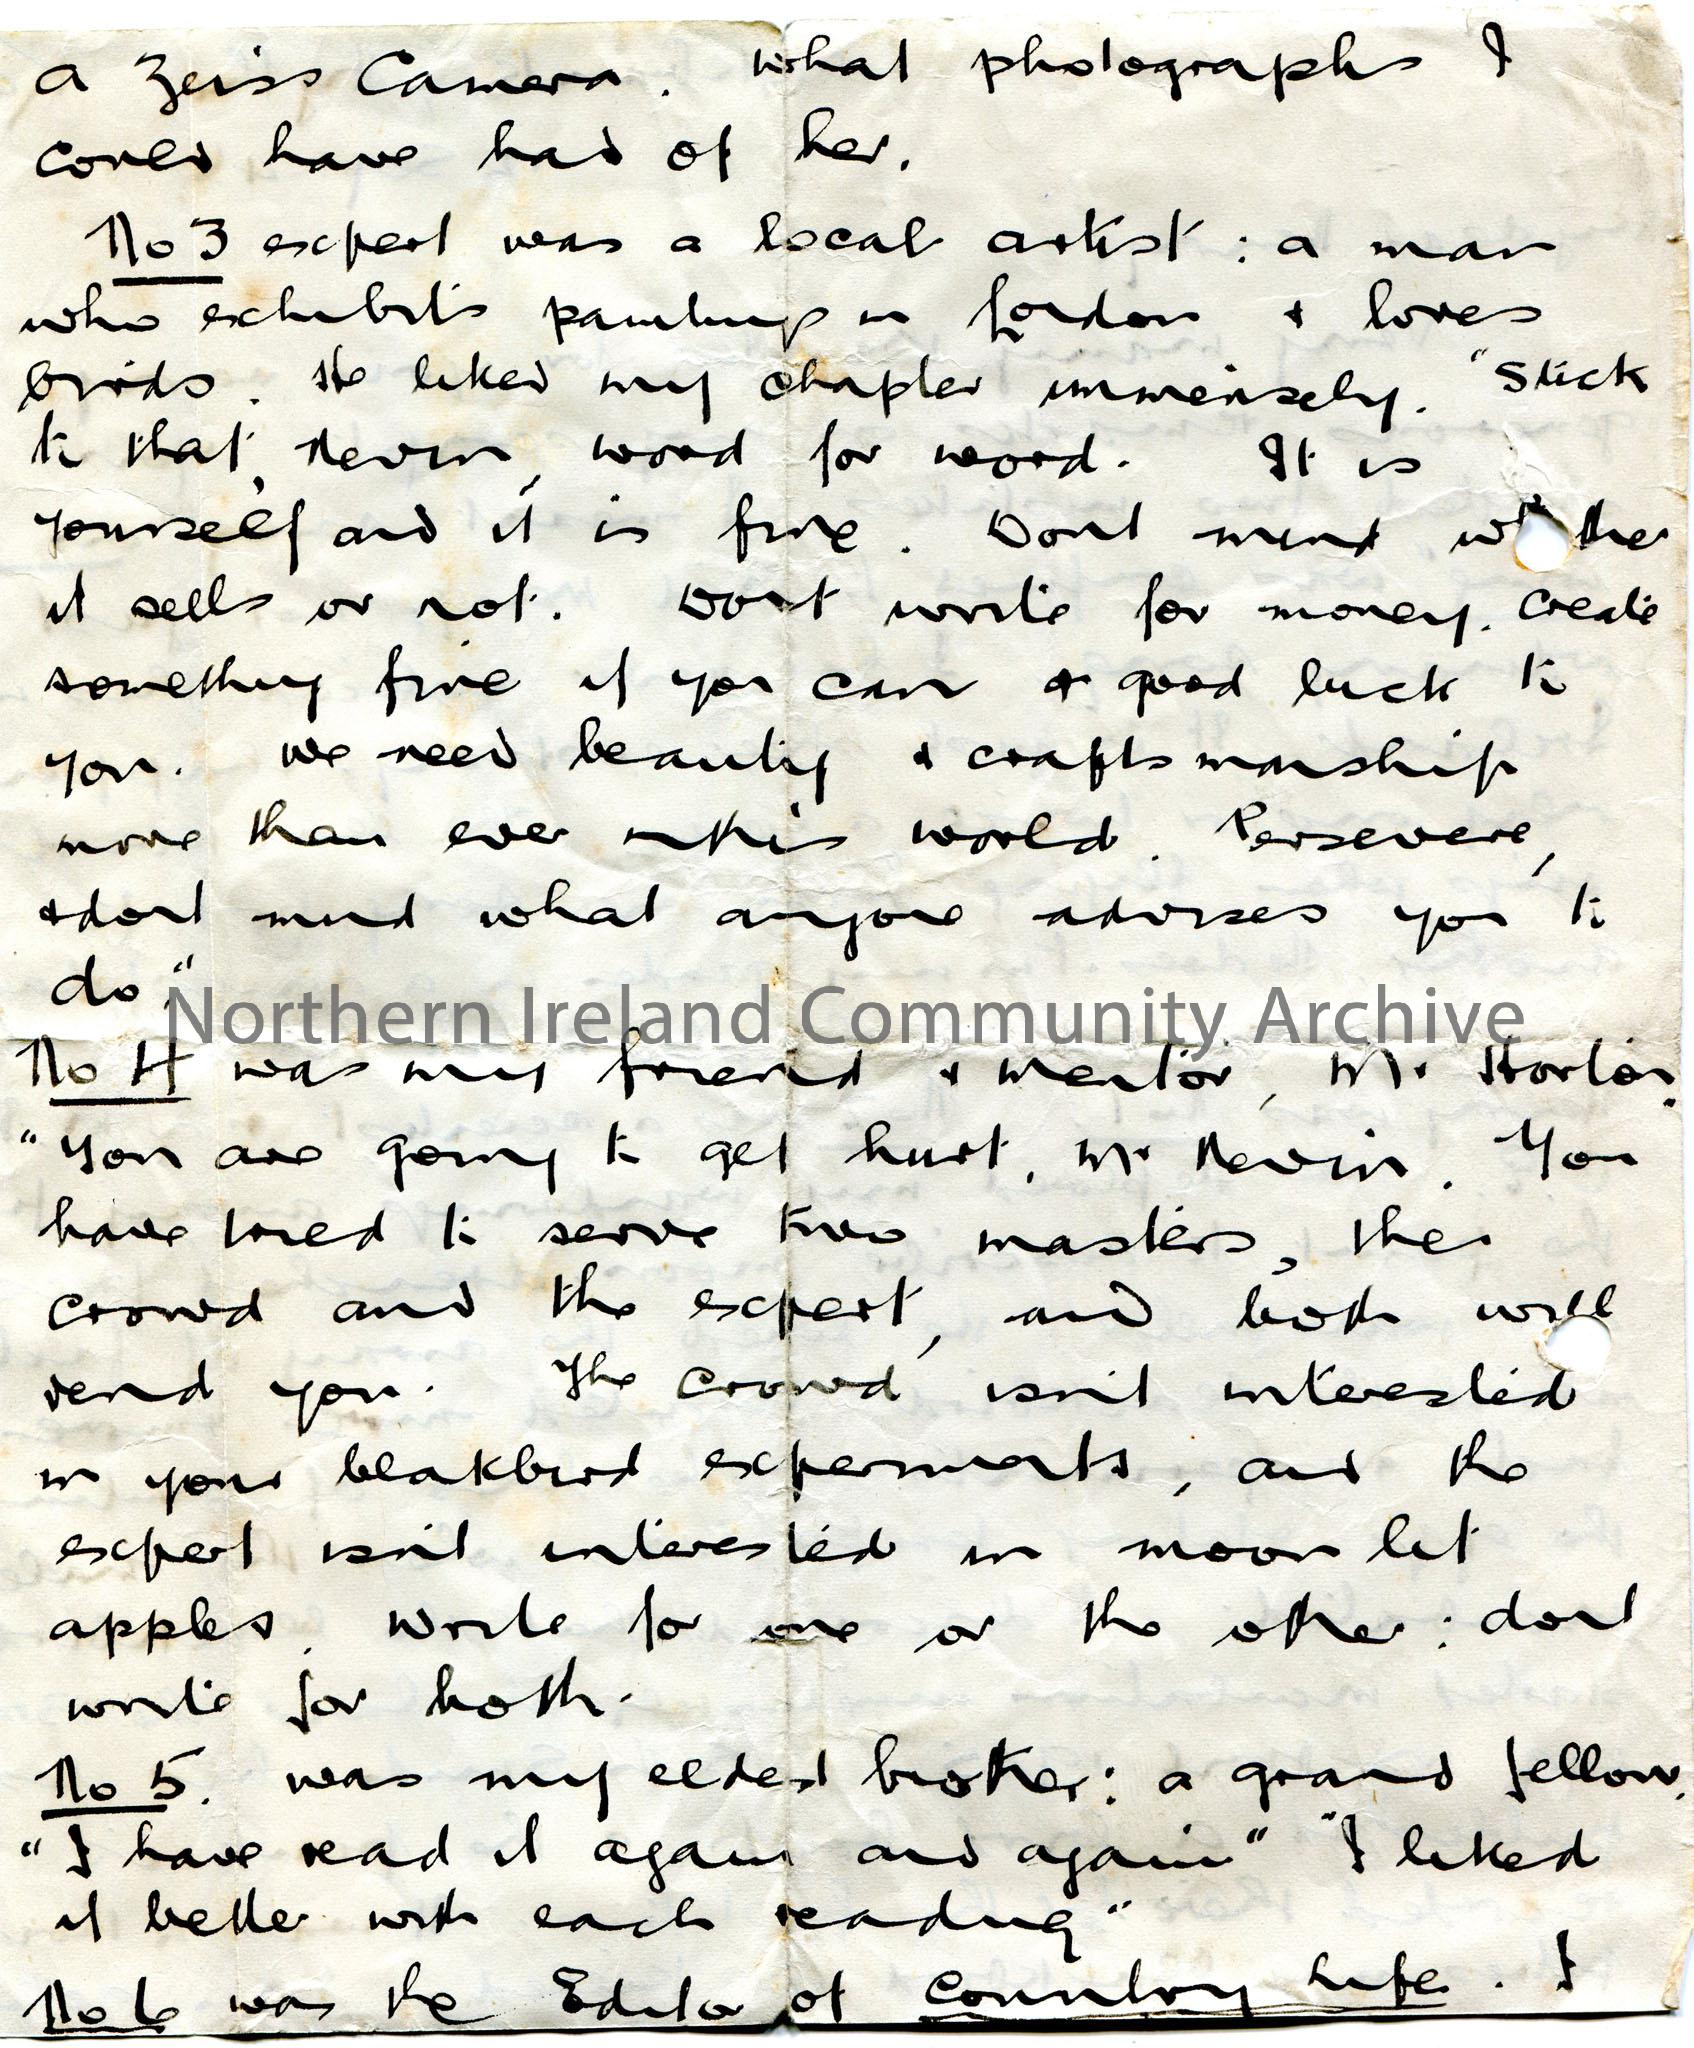 a Zeiss Camera. What photographs I
could have had of her.
No 3 expert was a local artist: a man
who exhibits paintings in London & loves
birds. He liked my chapter immensely. "Stick
to that, Nevin, word for word. It is
yourself and it is fine. Dont mind whether
it sells or not. Dont write for money. Create
something fine if you can & good luck to
you. We need beauty & craftsmanship
more than ever in this world. Persevere,
& dont mind what anyone advises you to
do."
Northern Ireland Community Archive
No 4 was my friend & mentor, Mr Horton.
"You are going to get hurt, Mr Nevin. You
have tried to serve two masters, the
crowd and the expert, and both will
rend you. The crowd isn't interested
in your blakbird experiments, and the
expert isn't interested in moon lit
apples. Write for one or the other: dont
write for both.
No 5. was my eldest brother: a grand fellow.
"I have read it again and again" "I liked
it better with each reading"
No 6 was the Editor of Country Life. I